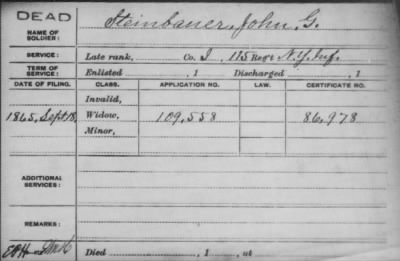 DEAD
NAME OF SOLDIER: Steinbauer, John G.
SERVICE: Late rank, Co. I, 115 Reg't N.Y. Inf.
TERM OF SERVICE: Enlisted , 1 Discharged , 1
DATE OF FILING. CLASS. APPLICATION NO. LAW. CERTIFICATE NO.
Invalid,
1865, Sept 18, Widow, 109,558 86,978
Minor,
ADDITIONAL SERVICES:
REMARKS:
Died , 1 , at